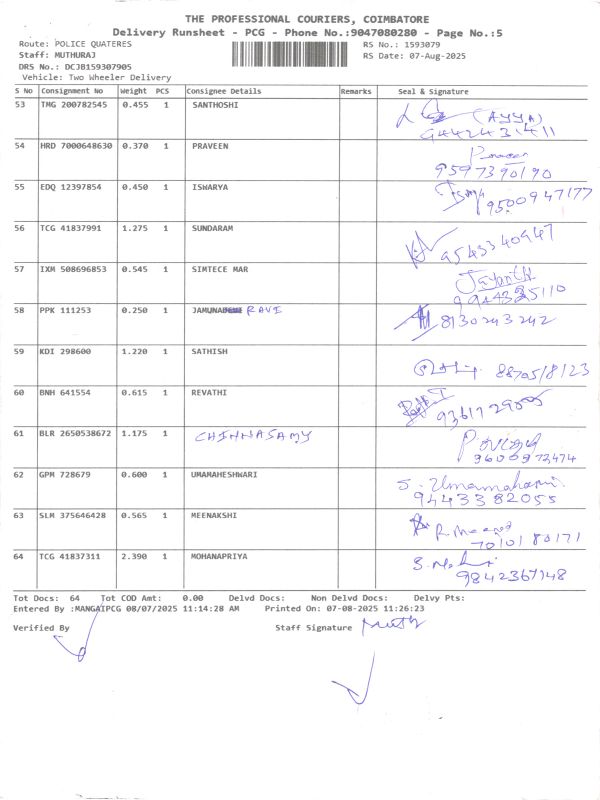 THE PROFESSIONAL COURIERS, COIMBATORE
Delivery Runsheet - PCG - Phone No.:9047080280 - Page No.:5
Route: POLICE QUATERES RS No.: 1593079
Staff: MUTHURAJ RS Date: 07-Aug-2025
DRS No.: DCJB159307905
Vehicle: Two Wheeler Delivery
S No Consignment No Weight PCS Consignee Details Remarks Seal & Signature
53 TMG 200782545 0.455 1 SANTHOSHI (AYYA)
9442431411
54 HRD 7000648630 0.370 1 PRAVEEN Praveen
9597390190
55 EDQ 12397854 0.450 1 ISWARYA 9500947177
56 TCG 41837991 1.275 1 SUNDARAM 9543340947
57 IXM 508696853 0.545 1 SIMTECE MAR Jayanth
58 PPK 111253 0.250 1 JAMUNA RAVI 8130243242
59 KDI 298600 1.220 1 SATHISH 8870518123
60 BNH 641554 0.615 1 REVATHI
61 BLR 2650538672 1.175 1 CHINNASAMY
9600973474
62 GPM 728679 0.600 1 UMAMAHESHWARI S. Umamaheswari
9443382055
63 SLM 375646428 0.565 1 MEENAKSHI
7010180171
64 TCG 41837311 2.390 1 MOHANAPRIYA
9842367148
Tot Docs: 64 Tot COD Amt: 0.00 Delvd Docs: Non Delvd Docs: Delvy Pts:
Entered By :MANGAIPCG 08/07/2025 11:14:28 AM Printed On: 07-08-2025 11:26:23
Verified By Staff Signature Muth